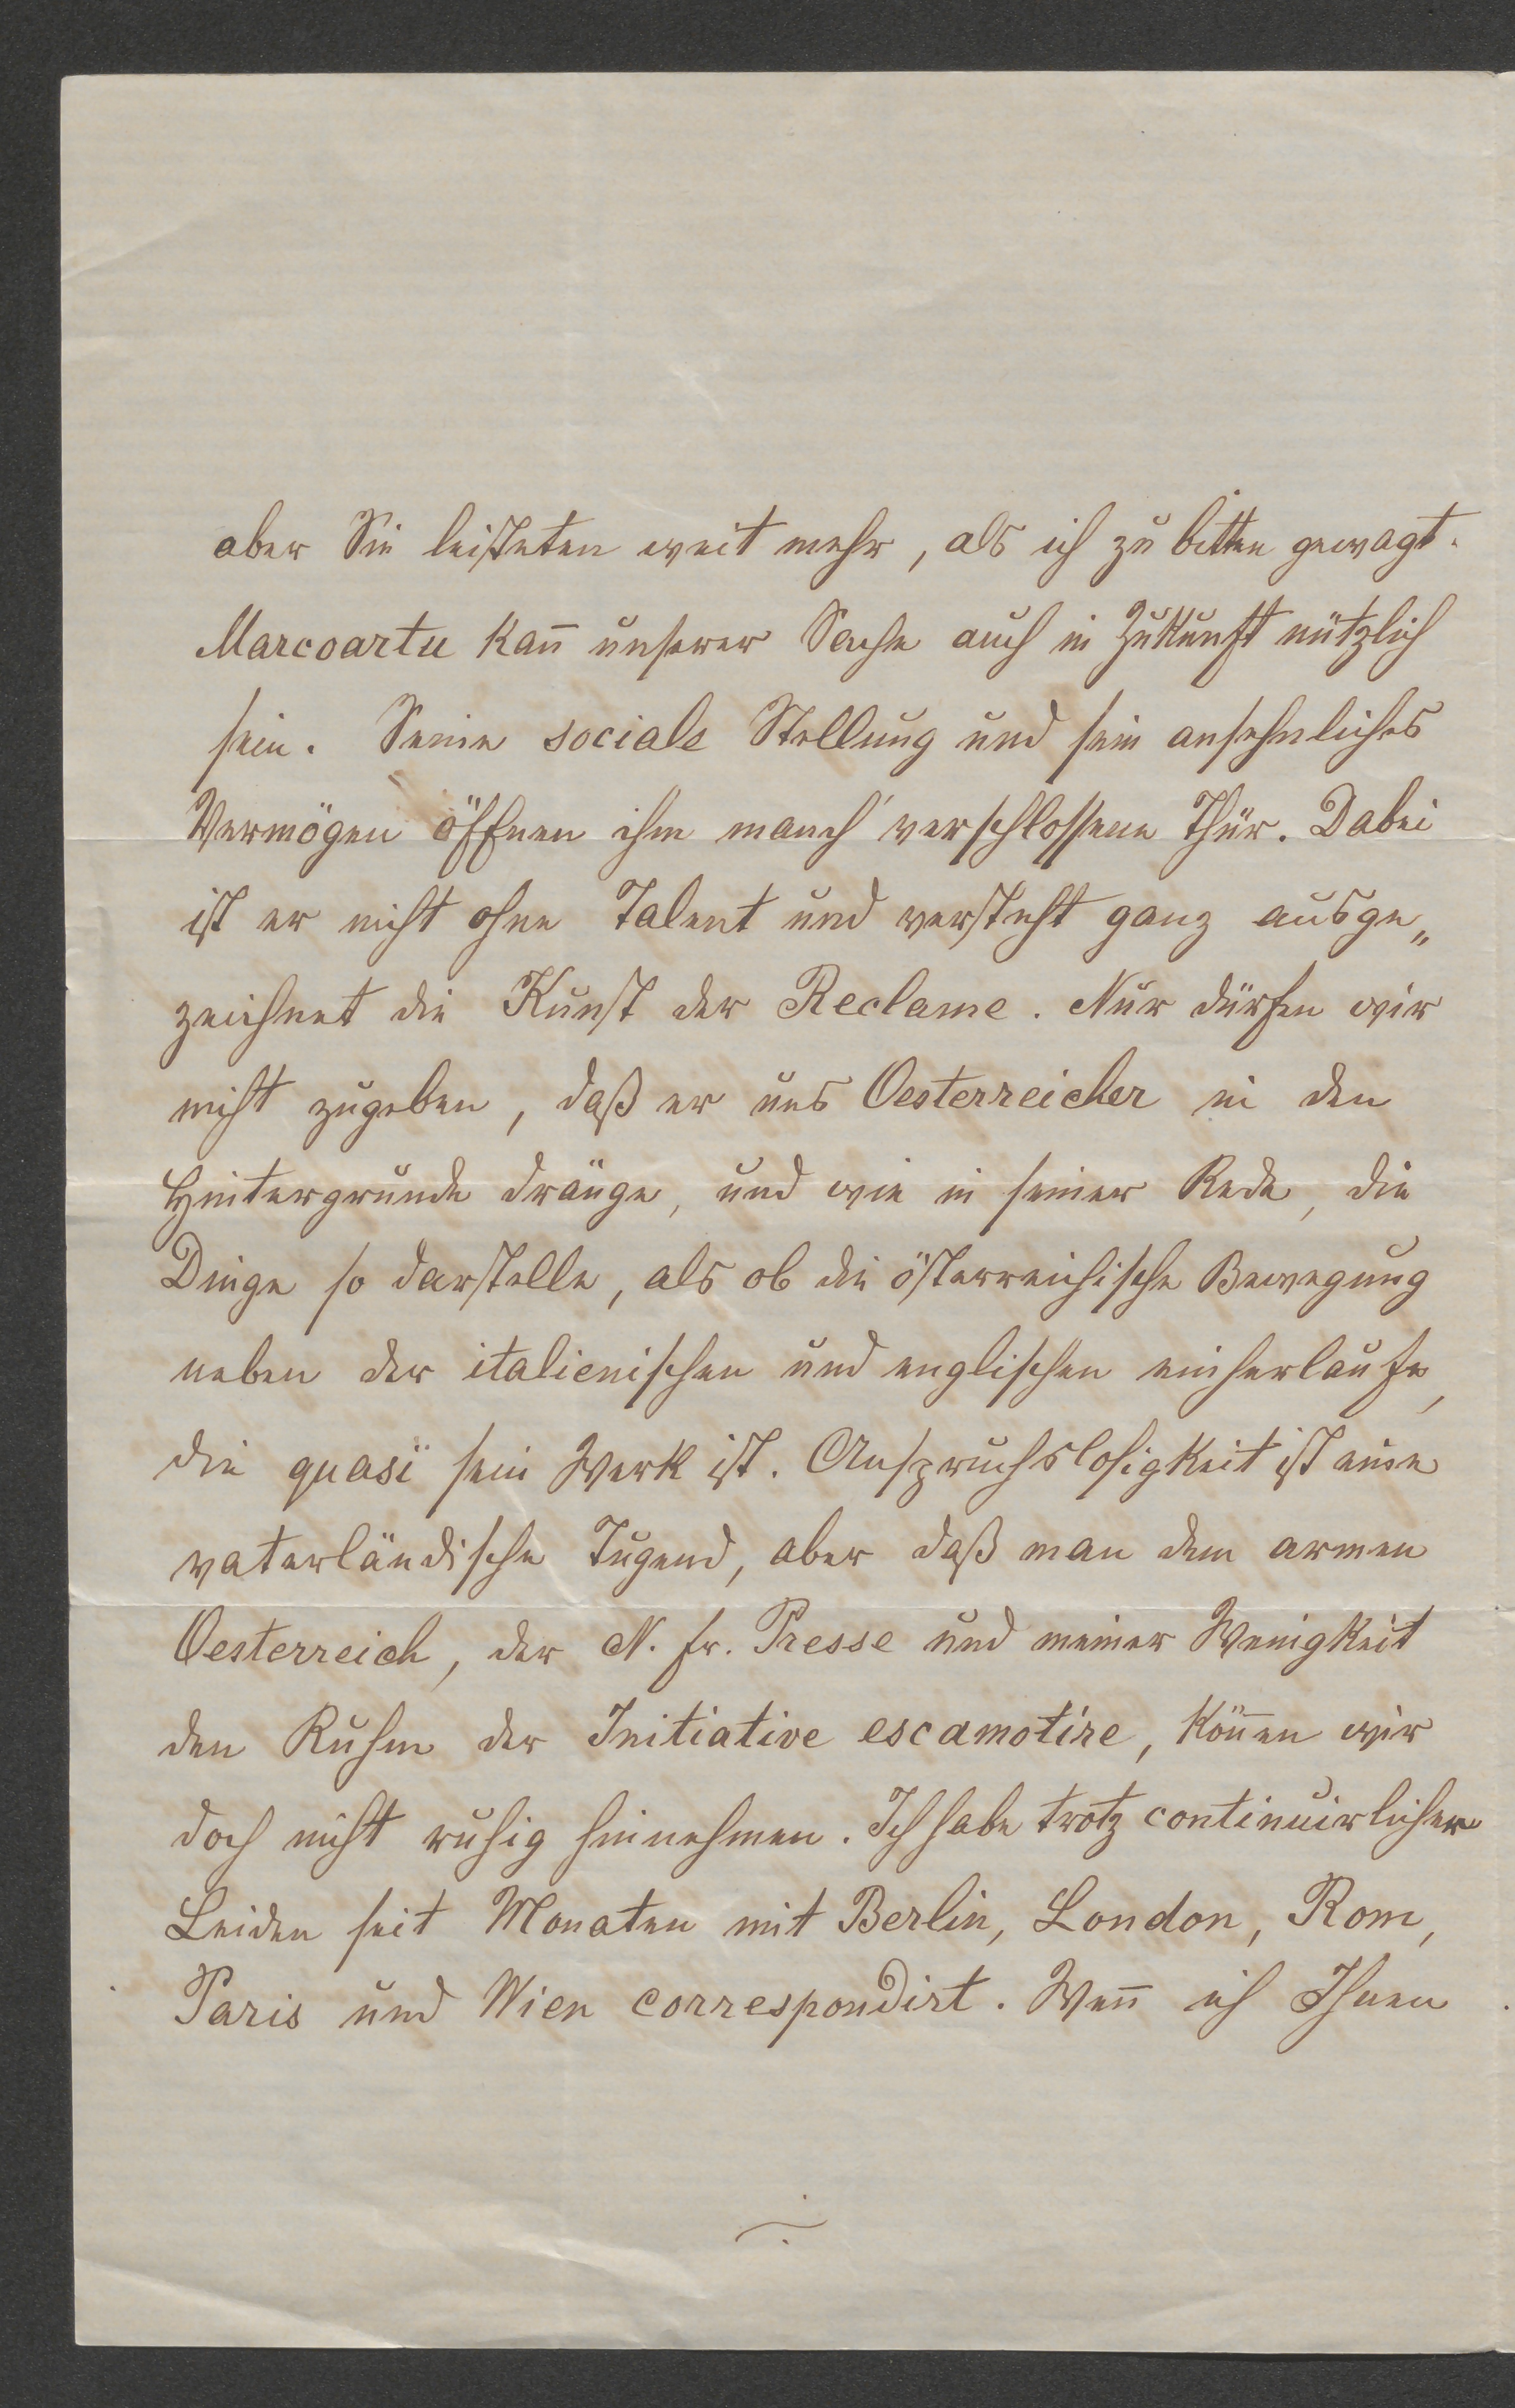 aber Sie leisteten weit mehr, als ich zu bitten gewagt.
Marcoartu kan̄ unserer Sache auch in Zukunft nützlich
sein. Seine sociale Stellung und sein ansehnliches
Vermögen öffnen ihm manch' verschlossene Thür. Dabei
ist er nicht ohne Talent und versteht ganz ausge„
zeichnet die Kunst der Reclame. Nur dürfen wir
nicht zugeben, daß er uns Oesterreicher in den
Hintergrunde dränge, und wie in seiner Rede, die
Dinge so darstelle, als ob die österreichische Bewegung
neben der italienischen und englischen einherlaufe,
die quasi sein Werk ist. Anspruchslosigkeit ist eine
vaterländische Tugend, aber daß man dem armen
Oesterreich, der N. fr. Presse und meiner Wenigkeit
den Ruhm der Initiative escamotire, kön̄en wir
doch nicht ruhig hinnehmen. Ich habe trotz continuirlicher
Leiden seit Monaten mit Berlin, London, Rom,
Paris und Wien correspondirt. Wen̄ ich Ihnen